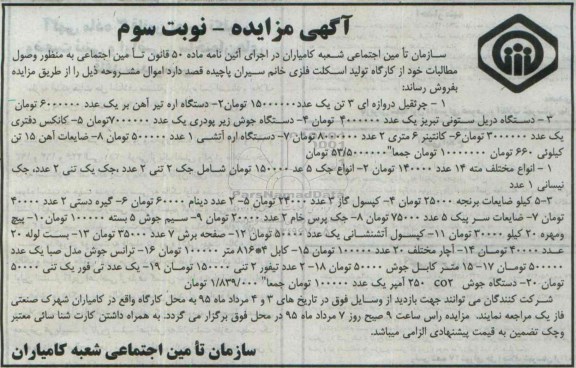 آگهی مزایده - نوبت سوم
سازمان تأمین اجتماعی شعبه کامیاران در اجرای آئین نامه ماده ۵۰ قانون تأمین اجتماعی به منظور وصول
مطالبات خود از کارگاه تولید اسکلت فلزی خانم سیران پاچیده قصد دارد اموال مشروحه ذیل را از طریق مزایده
بفروش رساند:
۱ - جرثقیل دروازه ای ۳ تن یک عدد ۱۵۰۰۰۰۰۰ تومان ۲- دستگاه اره تیر آهن بر یک عدد ۶۰۰۰۰۰۰ تومان
۳ - دستگاه دریل ستونی تبریز یک عدد ۴۰۰۰۰۰۰ تومان ۴- دستگاه جوش زیر پودری یک عدد ۷۰۰۰۰۰۰ تومان ۵- کانکس دفتری
یک عدد ۳۰۰۰۰۰۰ تومان ۶- کانتینر ۶ متری ۲ عدد ۸۰۰۰۰۰۰ تومان ۷- دستگاه اره آتشی ۱ عدد ۵۰۰۰۰۰ تومان ۸- ضایعات آهن ۱۵ تن
کیلوئی ۶۶۰ تومان ۱۰۰۰۰۰۰۰ تومان جمعا" ۵۳/۵۰۰۰۰۰ تومان
۱ - انواع مختلف مته ۱۴ عدد ۱۴۰۰۰۰ تومان ۲- انواع جک ۵ عد ۱۵۰۰۰۰ تومان شامل جک ۲ تنی ۲ عدد ،جک یک تنی ۲ عدد، جک
نیسانی ۱ عدد
۳- ۵ کیلو ضایعات برنجه ۲۵۰۰۰ تومان ۴- کپسول گاز ۳ عدد ۲۴۰۰۰ تومان ۵- ۲ عدد دینام ۶۰۰۰۰ تومان ۶- گیره دستی ۲ عدد ۴۰۰۰۰
تومان ۷- ضایعات سر پیک ۵ عدد ۷۵۰۰۰ تومان ۸- جک پرس خام ۲ عدد ۲۰۰۰۰ تومان ۹- سیم جوش ۵ بسته ۱۰۰۰۰۰ تومان ۱۰- پیچ
ومهره ۲۰ کیلو ۳۰۰۰۰ تومان ۱۱- کپسول آتشنشانی یک عدد ۵۰۰۰۰ تومان ۱۲- صفحه برش ۷ عدد ۳۵۰۰۰ تومان ۱۳- بست لوله ۲۰
عدد ۴۰۰۰۰ تومان ۱۴- آچار مختلف ۲۰ عدد ۱۰۰۰۰۰ تومان ۱۵- کابل ۴*۸۱۶ متر ۱۰۰۰۰۰ تومان ۱۶- ترانس جوش مدل صبا یک عدد
۵۰۰۰۰۰ تومان ۱۷- ۱۵ متر کابل جوش ۵۰۰۰۰ تومان ۱۸- ۲ عدد تیفور ۲ تنی ۱۵۰۰۰۰ تومان ۱۹- یک عدد تی فور یک تنی ۵۰۰۰۰
تومان ۲۰- دستگاه جوش co۲ ۲۵۰ آمپر یک عدد ۱۰۰۰۰۰ تومان جمعا" ۱/۸۳۹/۰۰۰ تومان
شرکت کنندگان می توانند جهت بازدید از وسایل فوق در تاریخ های ۳ و ۴ مرداد ماه ۹۵ به محل کارگاه واقع در کامیاران شهرک صنعتی
فاز یک مراجعه نمایند. مزایده راس ساعت ۹ صبح روز ۷ مرداد ماه ۹۵ در محل فوق برگزار می گردد. به همراه داشتن کارت شناسائی معتبر
وچک تضمین به قیمت پیشنهادی الزامی میباشد.
سازمان تأمین اجتماعی شعبه کامیاران